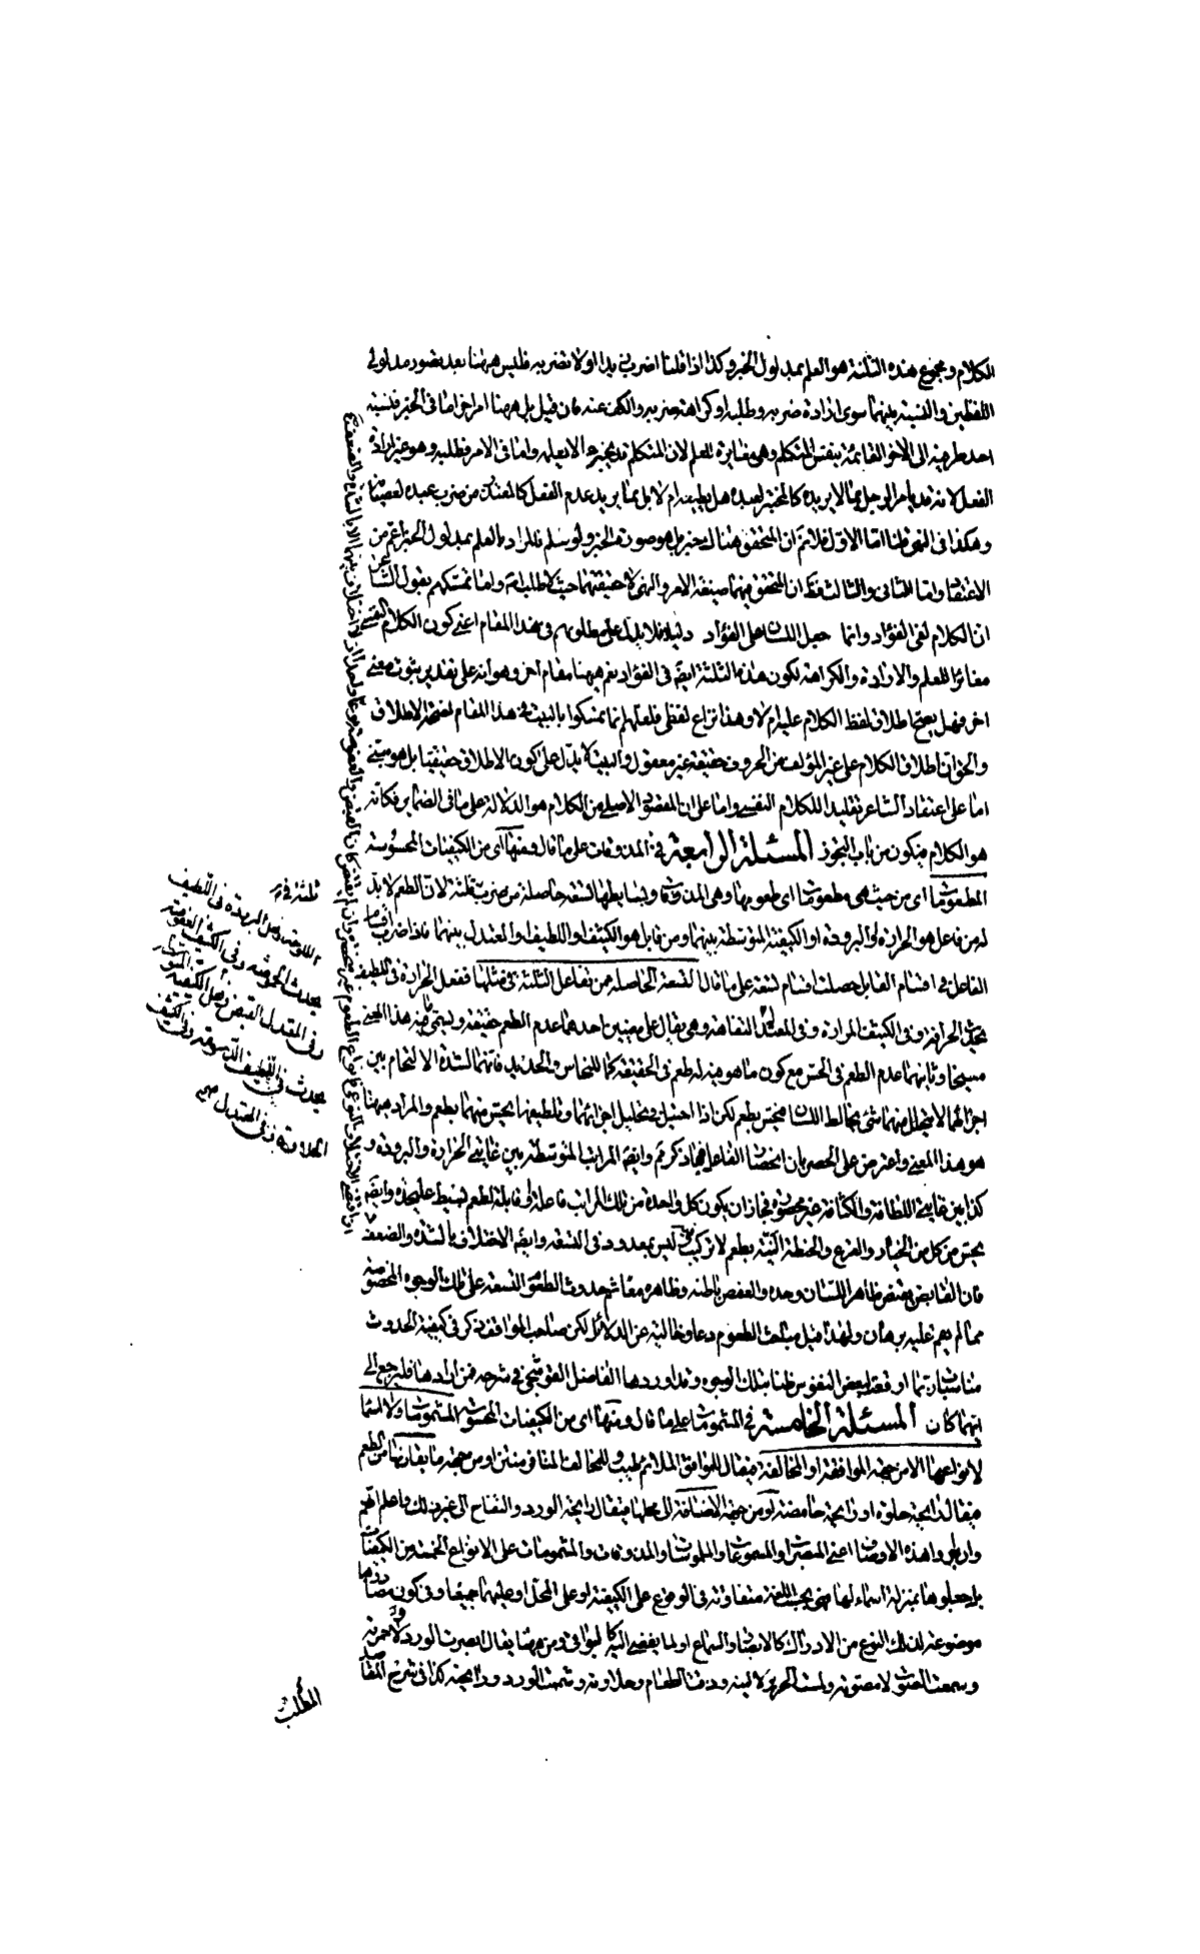 الكلام ومجموع هذه الثلثة هو العلم بمدلول الخبر وكذا اذا قلنا اضرب زيدا او لا تضربه فليس ههنا بعد تصور مدلولى
اللفظين والنسبة بينهما سوى ارادة ضربه وطلبه او كراهة ضربه والكف عنه فان قيل بل ههنا امر اخر اما فى الخبر فنسبة
احد طرفيه الى الاخر القائمة بنفس المتكلم وهى مغايرة للعلم لان المتكلم قد يخبر عما لا يعلمه واما فى الامر فطلبه وهو غير ارادة
الفعل لانه قد يامر الرجل بما لا يريده كالمختبر لعبده هل يطيعه ام لا بل بما يريد عدم الفعل كالمعتذر من ضرب عبده لعصيانه
وهكذا فى النهى قلنا اما الاول فلانم ان المتحقق هناك خبر بل هو صورة الخبر ولو سلم فالمراد بالعلم بمدلول الخبر اعم من
الاعتقاد واما الثانى والثالث فنقول ان المتحقق فيهما صيغة الامر والنهى لا حقيقتهما حيث لا طلب اصلا واما تمسكهم بقول الشاعر
ان الكلام لفى الفؤاد وانما جعل اللسان على الفؤاد دليلا فلا يدل على مطلوبهم فى هذا المقام اعنى كون الكلام النفسى
مغائرا للعلم والارادة والكراهة لكون هذه الثلثة ايضا فى الفؤاد نعم ههنا مقام اخر وهو انه على تقدير ثبوت معنى
اخر فهل يصح اطلاق لفظ الكلام عليه ام لا وهذا نزاع لفظى فلعلهم انما تمسكوا بالبيت فى هذا المقام لصحة الاطلاق
والحق ان اطلاق الكلام على غير المؤلف من الحروف حقيقة غير معقول والبيت لا يدل على كون الاطلاق حقيقيا بل هو مبنى
اما على اعتقاد الشاعر تقليدا للكلام النفسى واما على ان المقصود الاصلى من الكلام هو الدلالة على ما فى الضماير فكانه
هو الكلام فيكون من باب التجوز المسئلة الرابعة فى المذوقات على ما قال ومنها اى من الكيفيات المحسوسة
المطعومات اى من حيث هى مطعومات اى طعومها وهى المذوقات وبسايطها تسعة حاصلة من ضرب ثلثة لان الطعم لا بد
له من فاعل هو الحرارة او البرودة او الكيفية المتوسطة بينهما ومن قابل هو الكثيف او اللطيف او المعتدل بينهما فاذا ضرب اقسام
الفاعل فى اقسام القابل حصلت اقسام تسعة على ما قال التسعة الحاصلة من تفاعل الثلثة فى مثلها ففعل الحرارة فى اللطيف
يحدث الحرافة وفى الكثيف المرارة وفى المعتدل التفاهة وهى يقال على معنيين احدهما عدم الطعم حقيقة ويسمى هذا المعنى
مسيخا وثانيهما عدم الطعم فى الحس مع كون ما هو فيه له طعم فى الحقيقة كما للنحاس والحديد فانهما لشدة الالتحام بين
اجزائهما لا يتحلل منهما شئ يخالط اللسان فيحس بطعم لكن اذا احتيل فى تحليل اجزائهما وتلطيفها يحس منهما بطعم والمراد ههنا
هو هذا المعنى واعترض على الحصر بان انحصار الفاعل فيما ذكر ثم وايضا المراتب المتوسطة بين غايتى الحرارة والبرودة و
كذا بين غايتى اللطافة والكثافة غير محصورة فجاز ان يكون كل واحدة من تلك المراتب فاعلة او قابلة لطعم بسيط على حدة وايضا
يحس من كل من الخيار والقرع والحنطة النية بطعم لا تركيب فيه ليس بمعدود فى التسعة وايضا الاختلاف بالشدة والضعف
فان القابض يقبض ظاهر اللسان وحده والعفص باطنه وظاهره معا ثم حدوث الطعوم التسعة على تلك الوجوه المخصوصة
مما لم يقم عليه برهان ولهذا قيل مباحث الطعوم دعاو خالية عن الدلائل لكن صاحب المواقف ذكر فى كيفية الحدوث
مناسبات ربما اوقعت لبعض النفوس ظنا بتلك الوجوه وقد اوردها الفاضل القوشجى فى شرحه فمن ارادها فليرجع الى
ايهما كان المسئلة الخامسة فى المشمومات على ما قال ومنها اى من الكيفيات المحسوسة المشمومات ولا اسماء
لانواعها الا من جهة الموافقة او المخالفة فيقال للموافق الملائم طيب وللمخالف المنافر منتن او من جهة ما يقارنها من الطعم
فيقال رايحة حلوة او رايحة حامضة او من جهة الاضافة الى محلها فيقال رايحة الورد والتفاح الى غير ذلك واعلم انهم
وان اجروا هذه الاوصاف اعنى المبصرات والمسموعات والملموسات والمذوقات والمشمومات على الانواع الخمسة من الكيفيات
بل جعلوها بمنزلة اسماء لها فهى بحسب اللغة متفاوتة فى الوقوع على الكيفية او على المحل او عليهما جميعا وفى كون مصادرها
موضوعة لذلك النوع من الادراك كالابصار والسماع او لما يفضى اليه كالبواقى ومن ههنا يقال ابصرت الورد وحمرته
وسمعت الصوت لا مصوته ولمست الحرير لا لينه وذقت الطعام وحلاوته وشممت الورد ورايحته كذا فى شرح المقاصد
المطلب
ثلثة فى
اللاذعة وفعل البرودة فى اللطيف
يحدث الحموضة وفى الكثيف العفوصة
وفى المعتدل القبض وفعل الكيفية المتوسطة
يحدث فى اللطيف الدسومة وفى الكثيف
الحلاوة وفى المعتدل صح